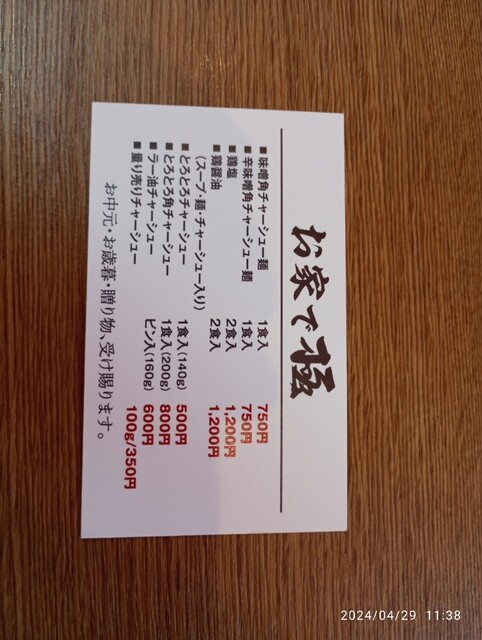 お家で極
■味噌角チャーシュー麺 1食入 750円
■辛味噌角チャーシュー麺 1食入 750円
■鶏塩 2食入 1,200円
■鶏醤油 2食入 1,200円
(スープ・麺・チャーシュー入り)
■とろとろチャーシュー 1食入(140g) 500円
■とろとろ角チャーシュー 1食入(200g) 800円
■ラー油チャーシュー ビン入(160g) 600円
■量り売りチャーシュー 100g/350円
お中元・お歳暮・贈り物、受け賜ります。
2024/04/29 11:38